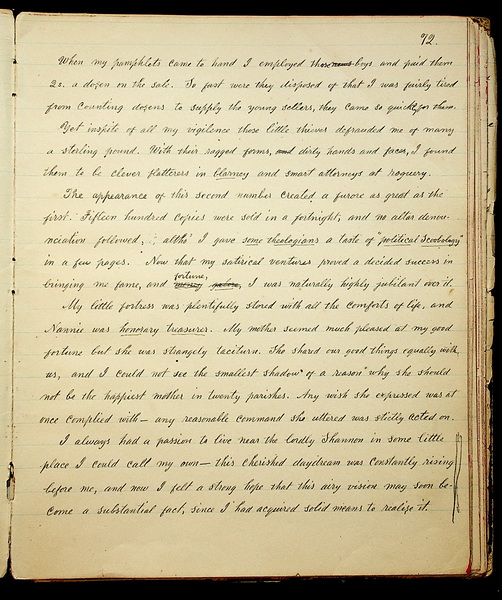 92.
When my pamphlets came to hand I employed boys and paid them
2s. a dozen on the sale. So fast were they disposed of that I was fairly tired
from counting dozens to supply the young sellers, they came so quickly for them.
Yet inspite of all my vigilence those little thieves defrauded me of many
a sterling pound. With their ragged forms, and dirty hands and faces, I found
them to be clever flatterers in blarney and smart attorneys at roguery.
The appearance of this second number created a furore as great as the
first. Fifteen hundred copies were sold in a fortnight, and no altar denun-
ciation followed, altho' I gave some theologians a taste of "political
in a few pages. Now that my satirical ventures proved a decided success in
fortune,
bringing me fame, and money I was naturally highly jubilant over it.
My little fortress was plentifully stored with all the comforts of life, and
Nannie was honorary treasurer. My mother seemed much pleased at my good
fortune but she was strangely taciturn. She shared our good things equally with
us, and I could not see the smallest shadow of a reason why she should
not be the happiest mother in twenty parishes. Any wish she expressed was at
once complied with — any reasonable command she uttered was stictly acted on.
I always had a passion to live near the lordly Shannon in some little
place I could call my own — this cherished daydream was constantly rising
before me, and now I felt a strong hope that this airy vision may soon be-
come a substantial fact, since I had acquired solid means to realize it.